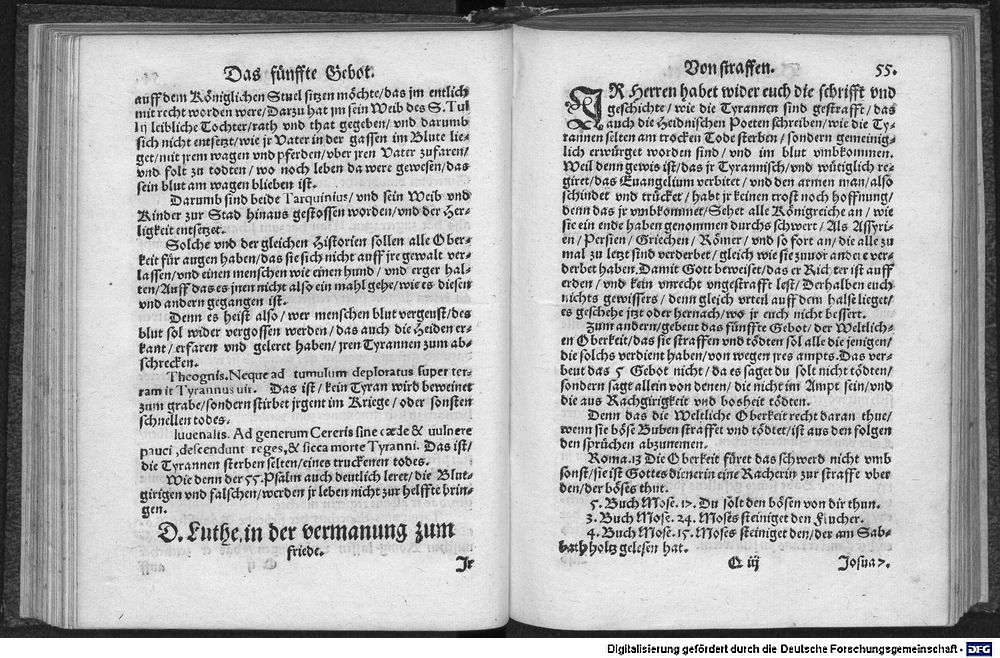 Das fünffte Gebot.
auff dem Königlichen Stuel sitzen möchte/das jm entlich
mit recht worden were/Darzu hat jm sein Weib des S. Tul
lij leibliche Tochter/rath vnd that gegeben/ vnd darumb
sich nicht entsetzt/wie jr Vater in der gassen im Blute lie-
get/mit jrem wagen vnd pferden/vber jren Vater zufaren/
vnd folt zu todten/ wo noch leben da were gewesen/das
sein blut am wagen blieben ist.
Darumb sind beide Tarquinius/vnd sein Weib vnd
Kinder zur Stad hinaus gestossen worden/vnd der Her-
ligkeit entsetzet.
Solche vnd der gleichen Historien sollen alle Ober-
keit für augen haben/das sie sich nicht auff jre gewalt ver-
lassen/vnd einen menschen wie einen hund/ vnd erger hal-
ten/Auff das es jnen nicht also ein mahl gehe/wie es diesen
vnd andern gegangen ist.
Denn es heist also/ wer menschen blut vergeust/des
blut sol wider vergossen werden/das auch die Heiden er-
kant/erfaren vnd geleret haben/jren Tyrannen zum ab-
schrecken.
Theognis. Neque ad tumulum deploratus super ter-
ram it Tyrannus uir. Das ist/kein Tyran wird beweinet
zum grabe/sondern stirbet jrgent im Kriege/ oder sonsten
schnellen todes.
Iuuenalis. Ad generum Cereris sine cæde & uulnere
pauci, descendunt reges, & sicca morte Tyranni. Das ist/
die Tyrannen sterben selten/eines truckenen todes.
Wie denn der 55. Psalm auch deutlich leret/die Blut-
girigen vnd falschen/werden jr leben nicht zur helffte brin-
gen.
D. Luthe. in der vermanung zum
friede.
Jr
Von straffen. 55.
JR Herren habet wider euch die schrifft vnd
geschichte/ wie die Tyrannen sind gestrafft/das
auch die Heidnischen Poeten schreiben/wie die Ty-
rannen selten am trocken Tode sterben/ sondern gemeinig-
lich erwürget worden sind/ vnd im blut vmbkommen.
Weil denn gewis ist/das jr Tyrannisch/vnd wütiglich re-
giret/das Euangelium verbitet/vnd den armen man/also
schindet vnd trücket/ habt jr keinen trost noch hoffnung/
denn das jr vmbkommet/Sehet alle Königreiche an/ wie
sie ein ende haben genommen durchs schwert/ Als Assyri-
en/Persien/ Griechen/ Römer/ vnd so fort an/die alle zu
mal zu letzt sind verderbet/gleich wie sie zuuor andere ver-
derbet haben. Damit Gott beweiset/das er Richter ist auff
erden/ vnd kein vnrecht vngestrafft lest/Derhalben euch
nichts gewissers/ denn gleich vrteil auff dem halse lieget/
es geschehe jtzt oder hernach/wo jr euch nicht bessert.
Zum andern/gebeut das fünffte Gebot/der Weltlich-
en Oberkeit/das sie straffen vnd tödten sol alle die jenigen/
die solchs verdient haben/von wegen jres ampts. Das ver-
beut das 5 Gebot nicht/da es saget du solt nicht tödten/
sondern sagt allein von denen/die nicht im Ampt sein/vnd
die aus Rachgirigkeit vnd bosheit tödten.
Denn das die Weltliche Oberkeit recht daran thue/
wenn sie böse Buben straffet vnd tödtet/ist aus den folgen
den sprüchen abzunemen.
Roma. 13 Die Oberkeit füret das schwerd nicht vmb
sonst/sie ist Gottes dienerin eine Racherin zur straffe vber
den/der böses thut.
5. Buch Mose. 17. Du solt den bösen von dir thun.
3. Buch Mose. 24. Moses steiniget den Flucher.
4. Buch Mose. 15. Moses steiniget den/der am Sab-
bath holtz gelesen hat.
Q iij Josua 7.
Digitalisierung gefördert durch die Deutsche Forschungsgemeinschaft - DFG